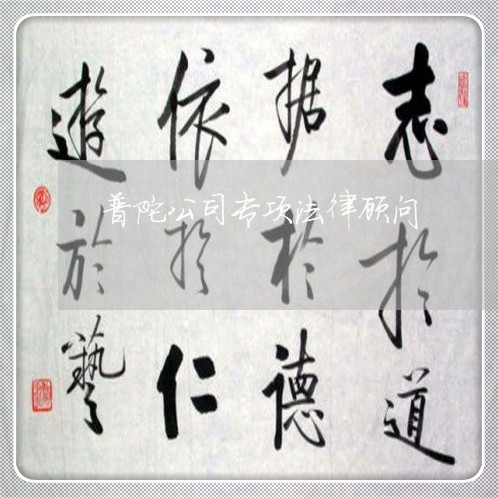 志於道
据於德
依於仁
遊於藝
普陀公司专项法律顾问